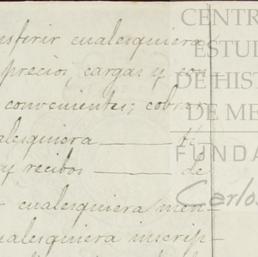 nsferir cualesquiera
precios, cargas y con
convenientes; cobrar
alesquiera —— 
y recibos —— de
cualesquiera men-
ualesquiera inscrip-
CENTR
ESTUDI
DE HIST
DE ME
FUNDA
Carlos